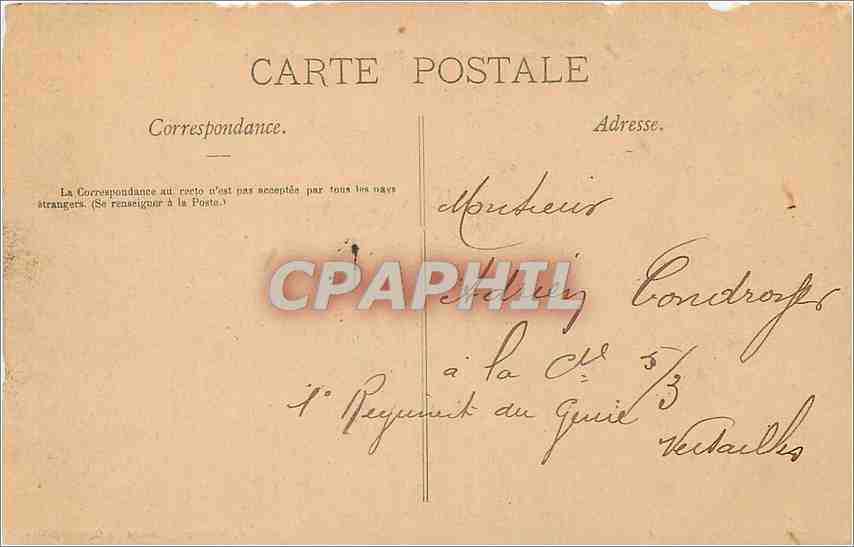 CARTE POSTALE
Correspondance.
Adresse.
La Correspondance au recto n'est pas acceptée par tous les pays
étrangers. (Se renseigner à la Poste.)
Monsieur
CPAPHIL
Adrien
à la Cie 5/3
1° Regiment du Genie
Versailles